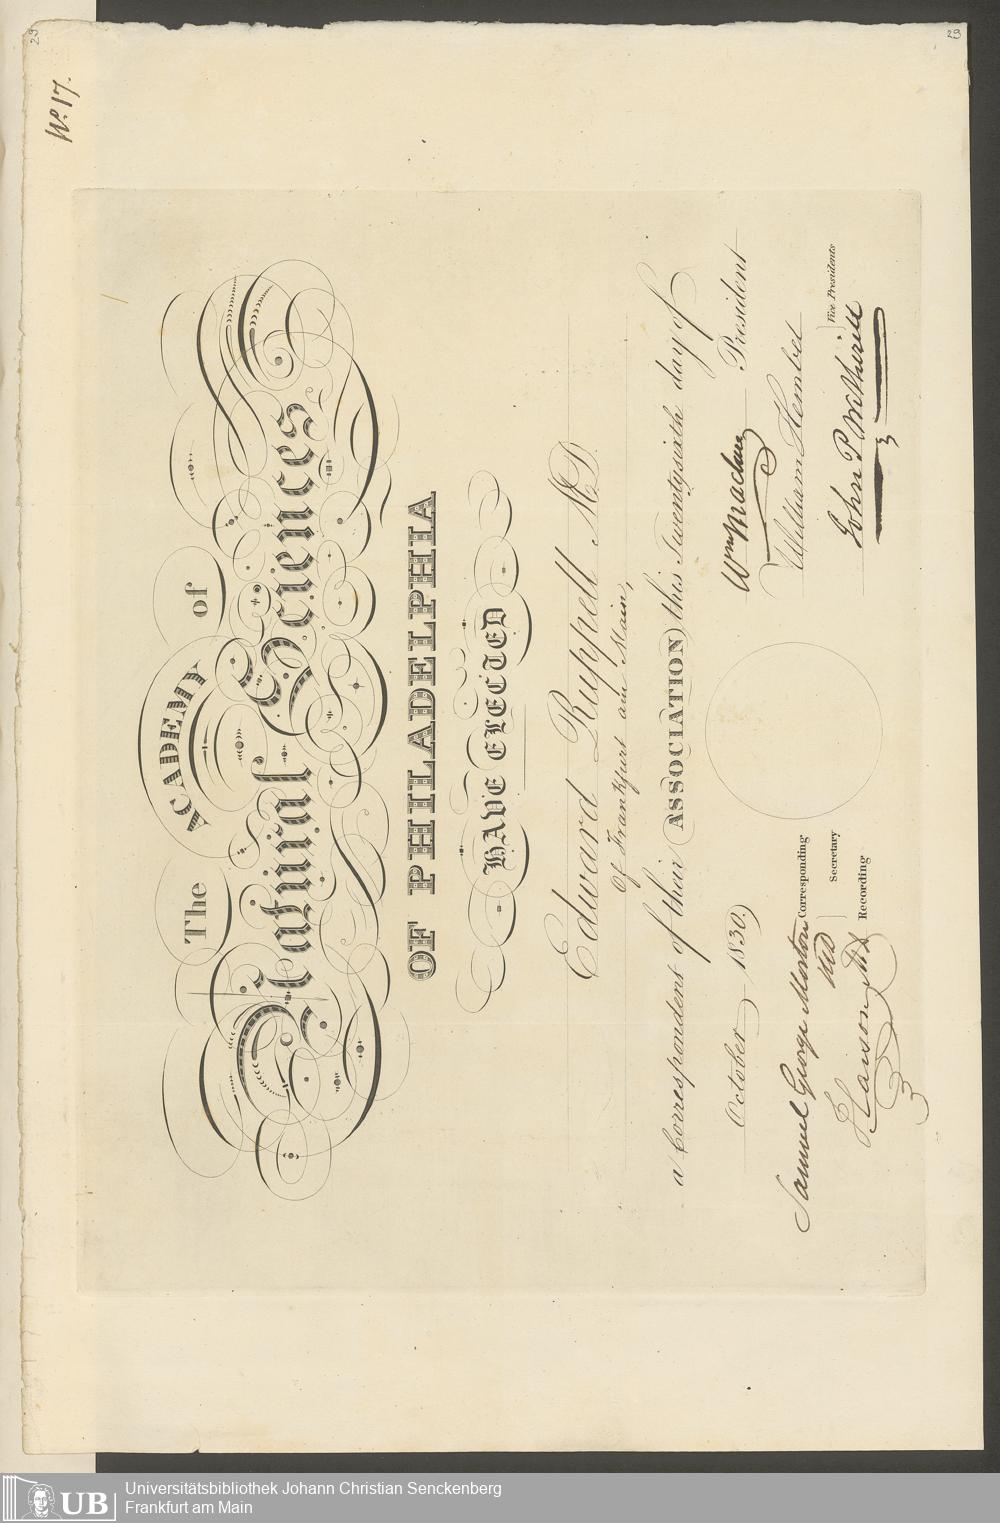 29
29
No. 17.
The ACADEMY of
Natural Sciences
OF PHILADELPHIA
HAVE ELECTED
Edward Ruppell M.D.
Of Frankfurt am Main,
a Correspondent of their ASSOCIATION this Twentysixth day of
October 1830.
Wm Maclure President
Samuel George Morton Corresponding
MD Secretary
William Hembel
John P. Wetherill Vice Presidents
Recording
UB
Universitätsbibliothek Johann Christian Senckenberg
Frankfurt am Main